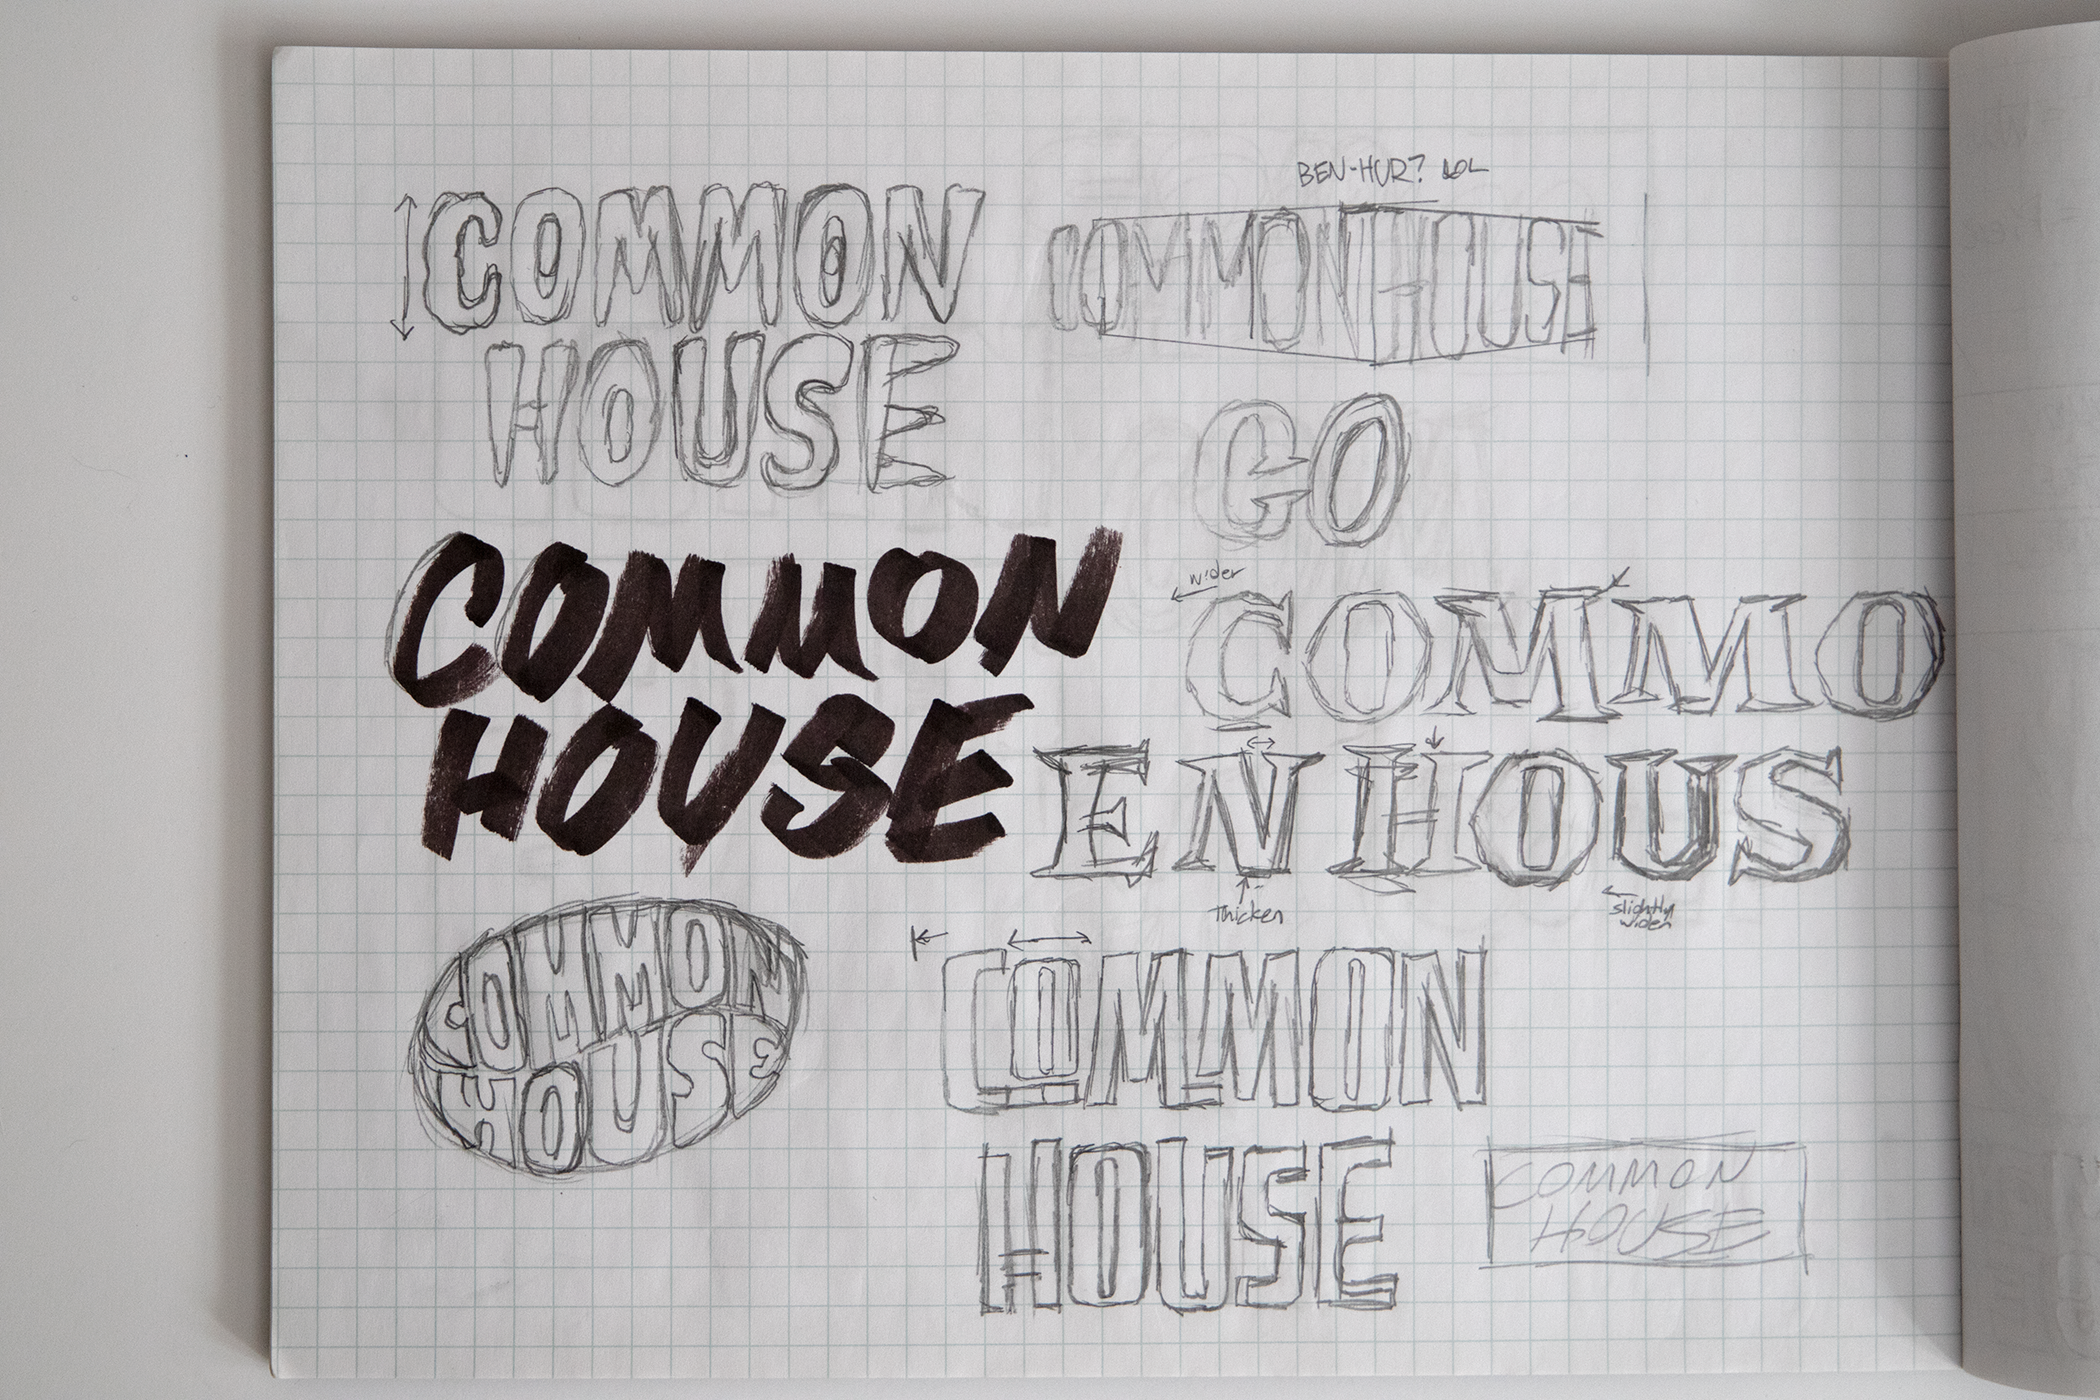 COMMON
HOUSE
BEN-HUR? LOL
COMMONHOUSE
GO
COMMON
HOUSE
wider
COMMO
ENHOUS
Thicken
slightly
wider
COMMON
HOUSE
COMMON
HOUSE
COMMON
HOUSE